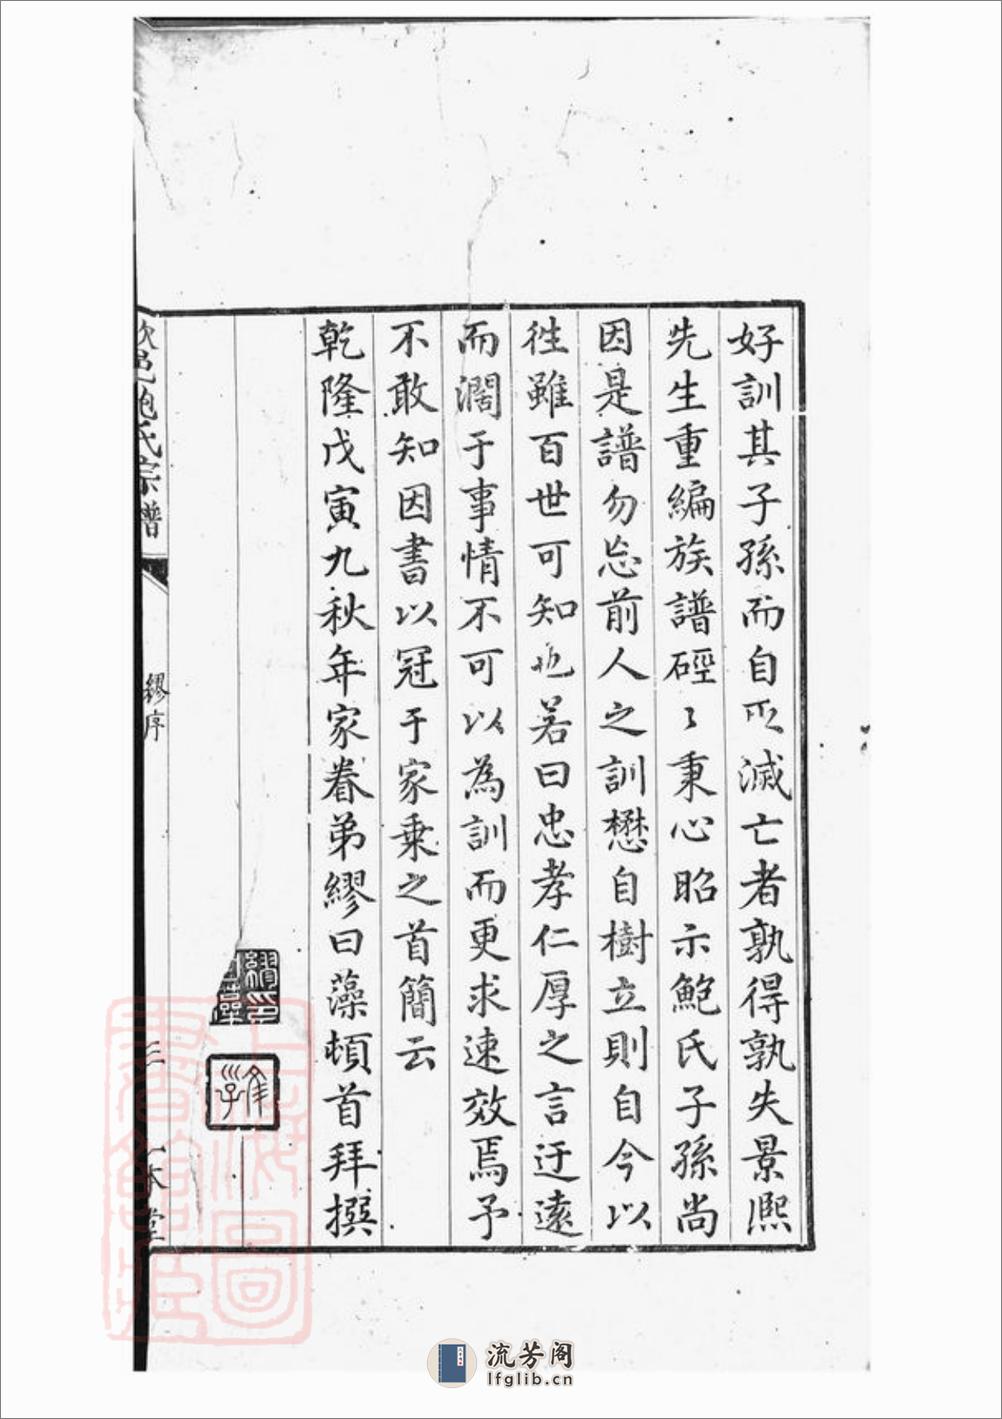 好訓其子孫而自取滅亡者孰得孰失景熈
先生重編族譜硜〻秉心昭示鮑氏子孫尚
因是譜勿忘前人之訓懋自樹立則自今以
徃雖百世可知也若曰忠孝仁厚之言迂遠
而濶于事情不可以為訓而更求速效焉予
不敢知因書以冠于家乗之首簡云
乾隆戊寅九秋年家眷弟繆曰藻頓首拜撰
繆曰藻印
歙邑鮑氏宗譜
繆序
三
本堂
上海圖書館藏
流芳阁
lfglib.cn